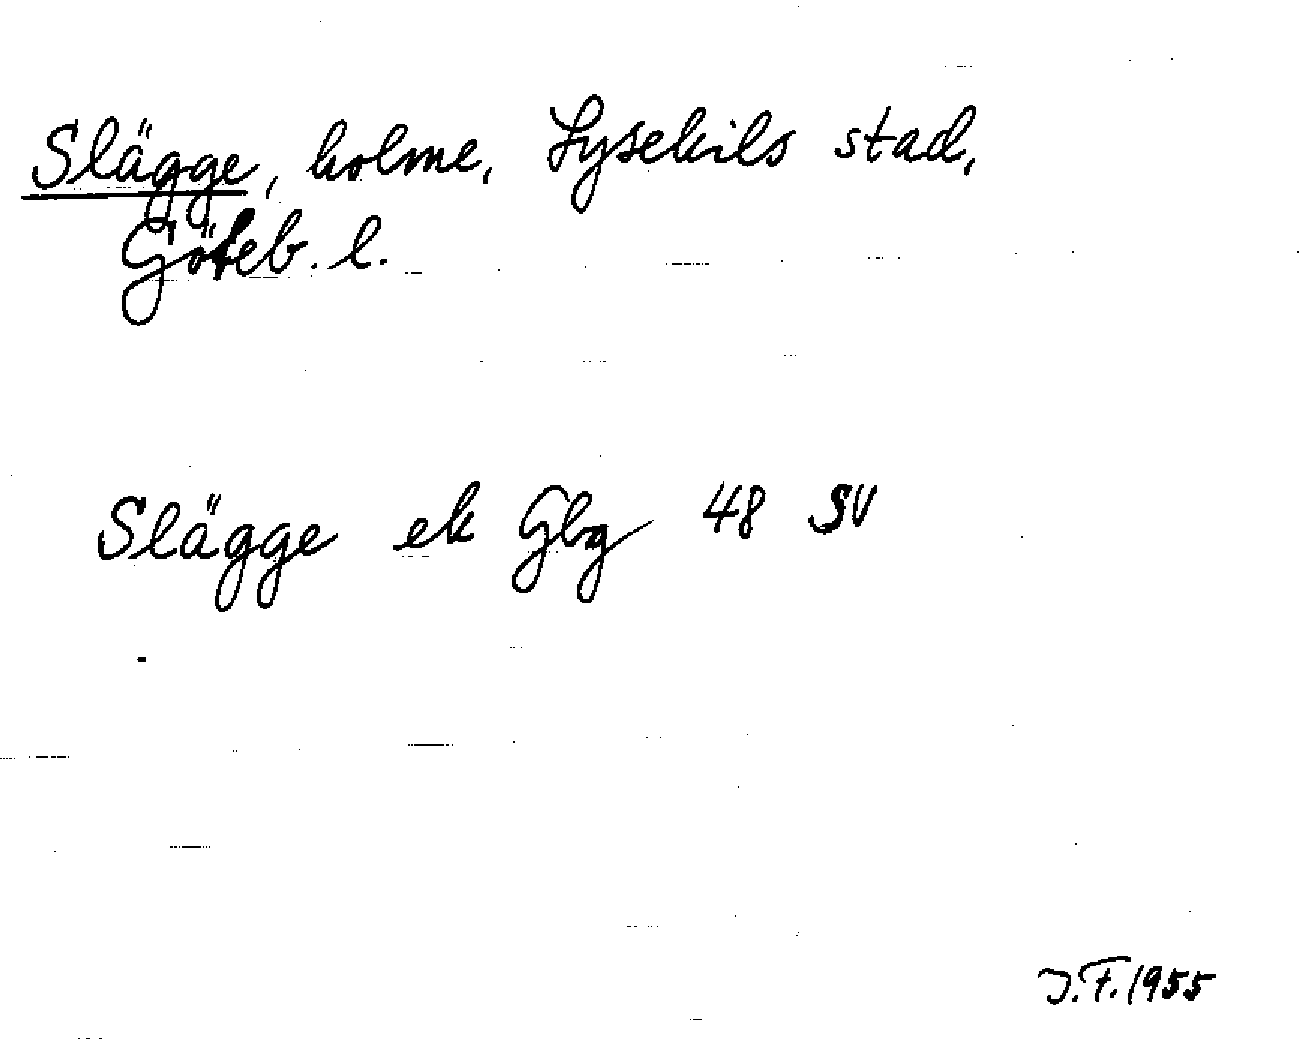 Slägge, holme, Lysekils stad,
Göteb. l.
Slägge ek Gbg 48 SV
J.F. 1955